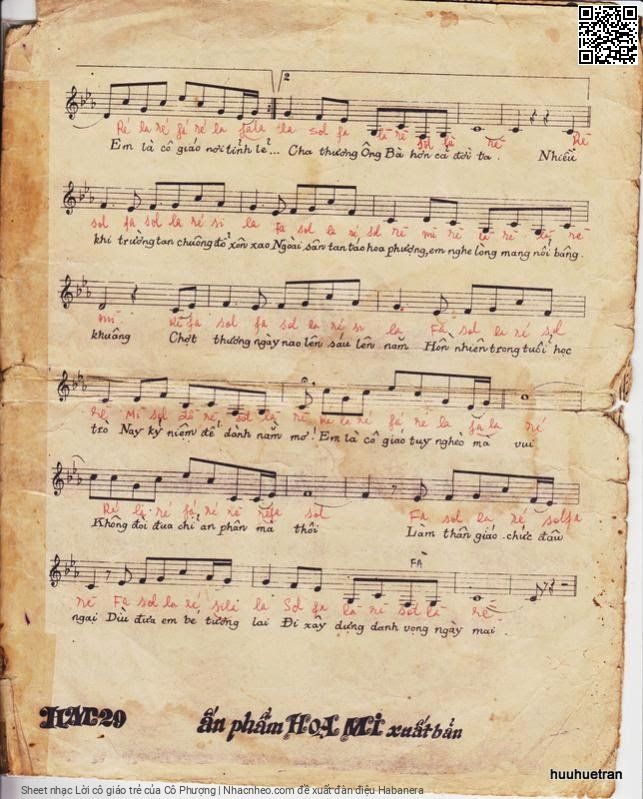 2
Ré la ré fá ré la fala la sol fa la rê sol fà rê Rê
Em là cô giáo nơi tỉnh lẻ... Cha thương Ông Bà hơn cả đời ta. Nhiều
sol fa sol la ré si la Fa sol la ré sol rê mi rê là rê là rê
khi trường tan chuông đổ xôn xao Ngoài sân tan tác hoa phượng, em nghe lòng mang nỗi bâng
mi Rê fa sol fa sol la ré si la Fa sol la ré sol
khuâng Chợt thương ngày nao lên sáu lên năm Hồn nhiên trong tuổi học
rê Mi sol rê sol là rê la ré fá ré la fa la ré
trò Nay kỷ niệm để dành nằm mơ. Em là cô giáo tuy nghèo mà vui
Ré ré fá ré rê rêfa sol Fa sol la ré solfa
Không đòi đua chỉ an phận mà thôi Làm thân giáo chức đâu
FÀ
rê Fa sol la ré sila la Sol fa là rê sol là rê
ngại Dìu đưa em bé tương lai Đi xây dựng danh vọng ngày mai.
HMC29 ấn phẩm HOẠ MI xuất bản
huuhuetran
Sheet nhạc Lời cô giáo trẻ của Cô Phượng | Nhacnheo.com đề xuất đàn điệu Habanera